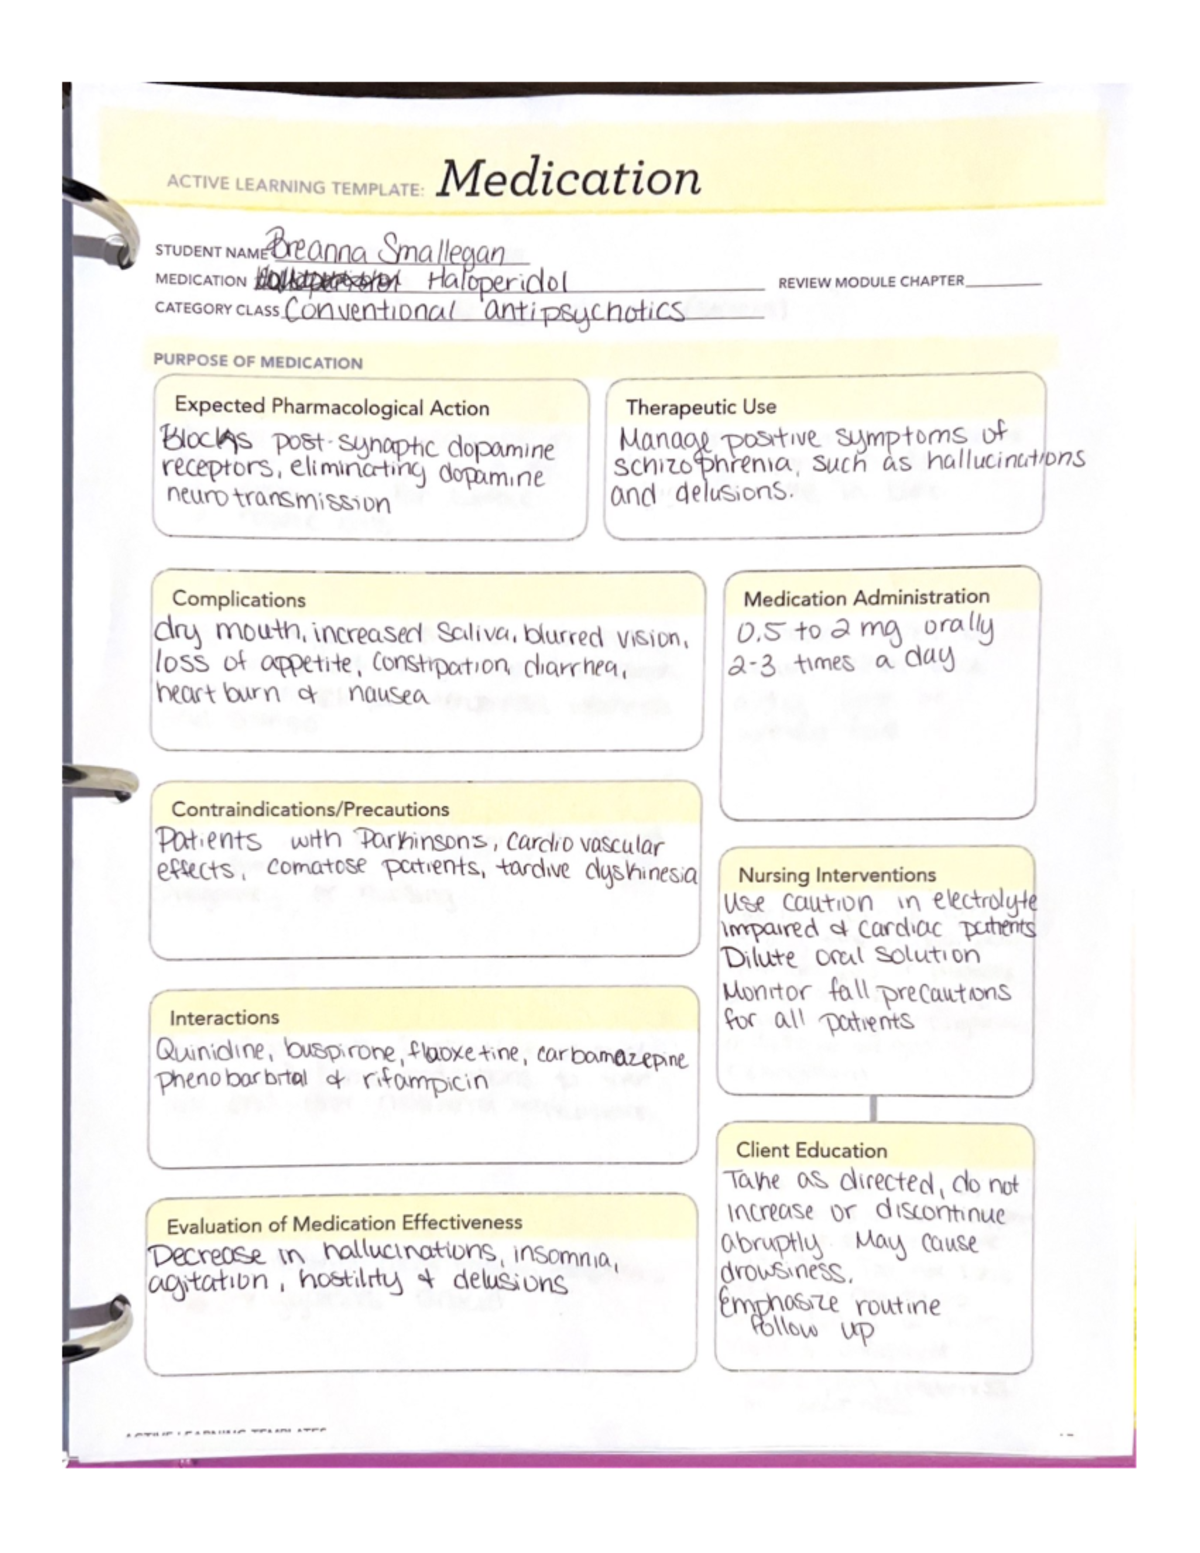 ACTIVE LEARNING TEMPLATE: Medication
STUDENT NAME Breanna Smallegan
MEDICATION Haloperidol
REVIEW MODULE CHAPTER
CATEGORY CLASS Conventional Antipsychotics
PURPOSE OF MEDICATION
Expected Pharmacological Action
Blocks post-synaptic dopamine
receptors, eliminating dopamine
neurotransmission
Therapeutic Use
Manage positive symptoms of
schizophrenia, such as hallucinations
and delusions.
Complications
dry mouth, increased saliva, blurred vision,
loss of appetite, constipation, diarrhea,
heart burn & nausea
Medication Administration
0.5 to 2 mg orally
2-3 times a day
Contraindications/Precautions
Patients with Parkinsons, cardiovascular
effects, comatose patients, tardive dyskinesia
Nursing Interventions
Use caution in electrolyte
impaired & cardiac patients
Dilute oral solution
Monitor fall precautions
for all patients
Interactions
Quinidine, buspirone, fluoxetine, carbamazepine
phenobarbital & rifampicin
Client Education
Take as directed, do not
increase or discontinue
abruptly. May cause
drowsiness.
Emphasize routine
follow up
Evaluation of Medication Effectiveness
Decrease in hallucinations, insomnia,
agitation, hostility & delusions
ACTIVE LEARNING TEMPLATES